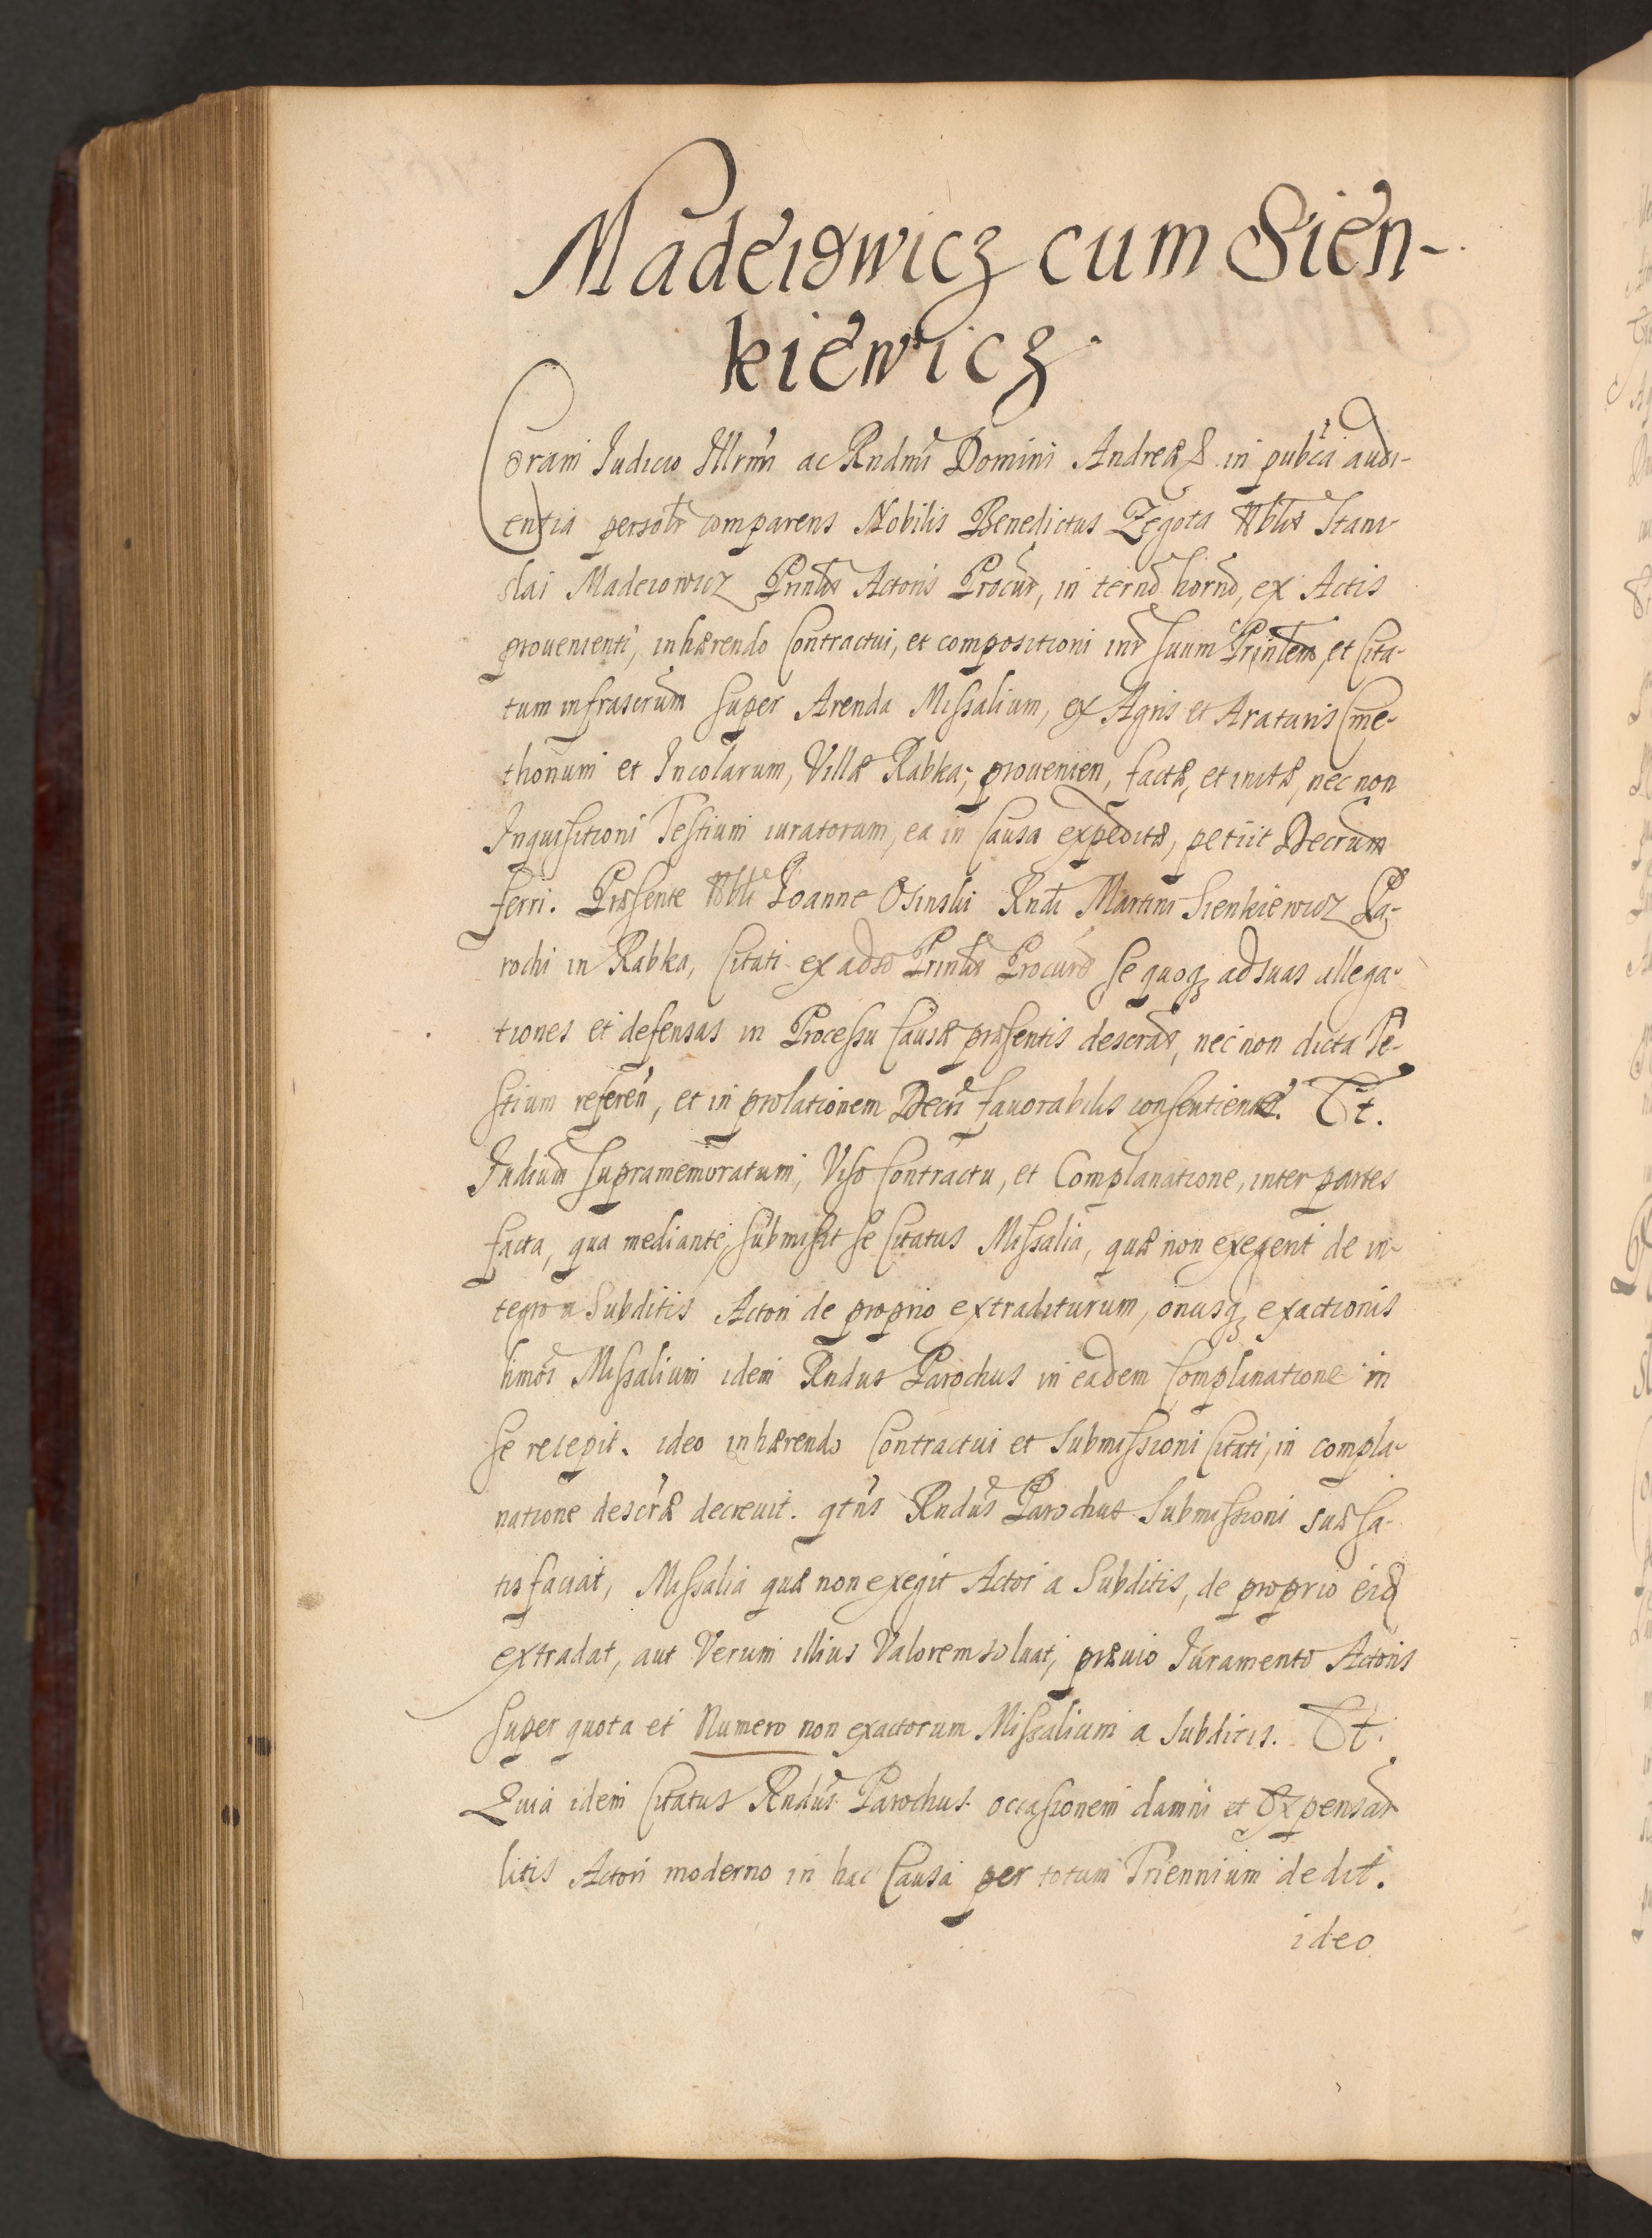 Madeiowicz cum Sien-
kiewicz.
Coram Iudicio Illrmi ac Rndmi Domini Andreæ &. in publca audi-
entia persolr comparens Nobilis Benedictus Zegota Nblis Stani-
slai Madeiowicz Prinlis Actoris Procur, in termo horno, ex Actis
prouenienti, inhærendo Contractui, et compositioni intr suum Prinlem, et Cita-
tum infrascrum super Arenda Missalium, ex Agris et Araturis Cme-
thonum et Incolarum, Villæ Rabka, prouenien, factæ, et initæ, nec non
Inquisitioni Testium iuratorum, ea in Causa expeditæ, petiit Decrum
ferri. Præsente Nbli Ioanne Osinski Rndi Martini Sienkiewicz Pa-
rochi in Rabka, Citati ex adso Prinlis Procure se quoq ad suas allega-
tiones et defensas in Processu Causæ præsentis descras, nec non dicta Te-
stium referen, et in prolationem Decri fauorabilis consentiente. Et.
Iudium supramemoratum, Viso Contractu, et Complanatione, inter partes
facta, qua mediante, submisit se Citatus Missalia, quæ non exegerit de in-
tegro a Subditis Actori de proprio extraditurum, onusq exactionis
himoi Missalium idem Rndus Parochus in eadem Complanatione in
se recepit. ideo inhærendo Contractui et Submissioni Citati, in compla-
natione descræ decreuit. qtns Rndus Parochus Submissioni suæ sa-
tisfaciat, Missalia quæ non exegit Actor a Subditis, de proprio eid
extradat, aut Verum illius Valorem soluat, præuio Iuramento Actoris
super quota et Numero non exactorum Missalium a Subditis. Et.
Quia idem Citatus Rndus Parochus occasionem damni et Expensar
litis Actori moderno in hac Causa per totum Triennium dedit.
ideo